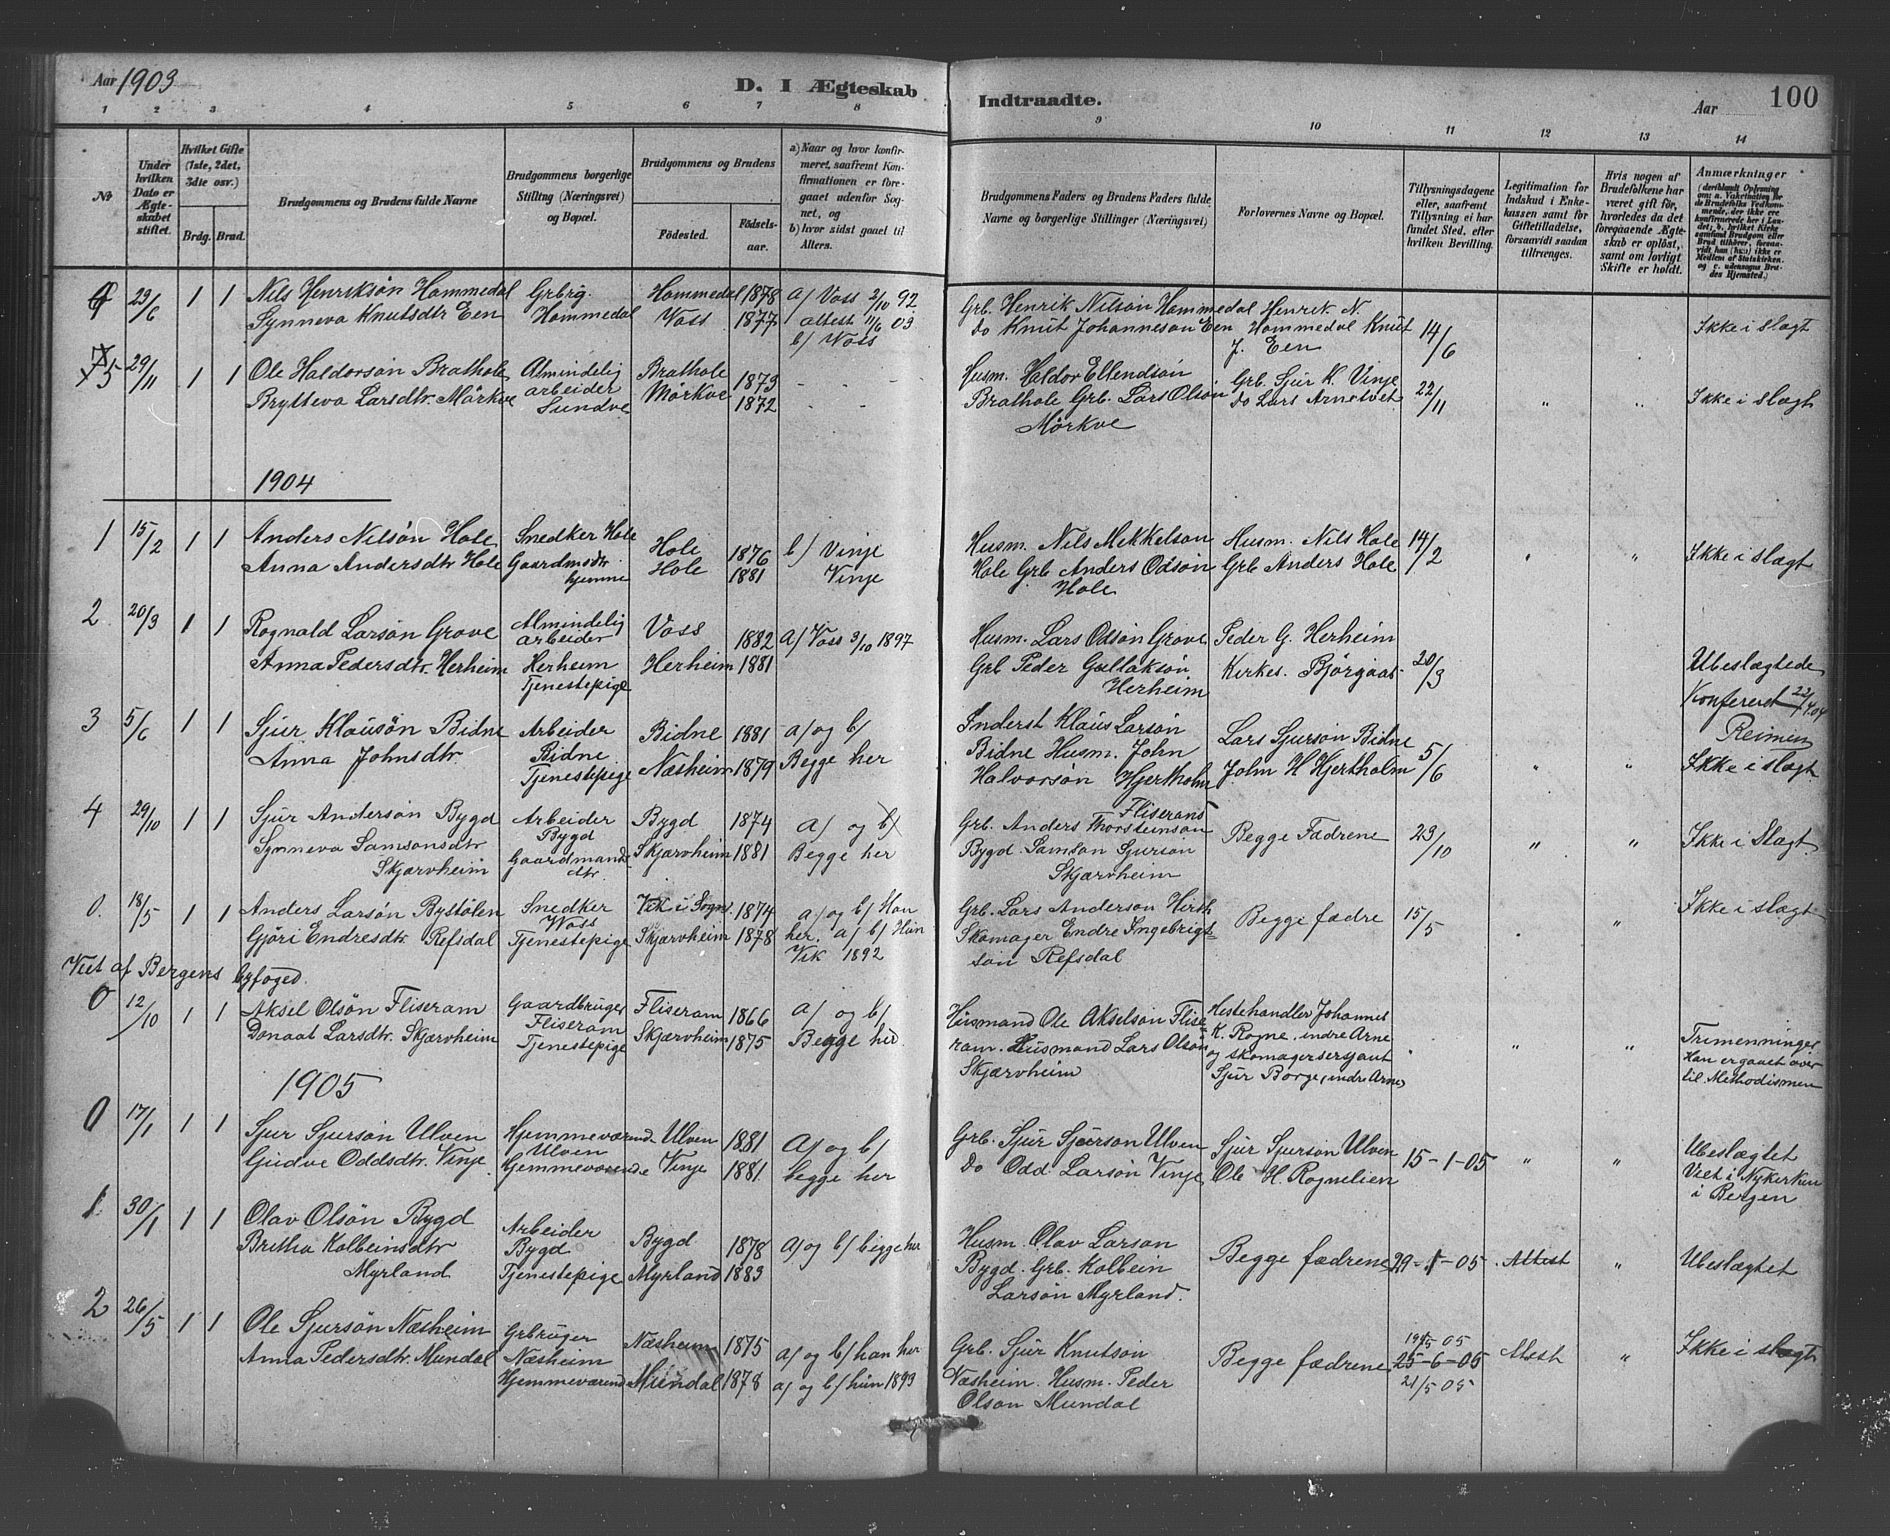 Aar 1903
D. I Ægteskab
Indtraadte.
Aar
100
1 2 3 4 5 6 7 8 9 10 11 12 13 14
No
Under hvilken Dato er Ægteskabet stiftet.
Hvilket Gifte (1ste, 2det, 3die osv.)
Brdg. Brud.
Brudgommens og Brudens fulde Navne
Brudgommens borgerlige Stilling (Næringsvei) og Bopæl.
Brudgommens og Brudens
Fødested.
Fødselsaar.
a) Naar og hvor konfirmeret, saafremt Konfirmationen er foregaaet udenfor Sognet, og
b) hvor sidst gaaet til Alters.
Brudgommens Faders og Brudens Faders fulde Navne og borgerlige Stillinger (Næringsvei)
Forlovernes Navne og Bopæl.
Tillysningsdagene eller, saafremt Tillysning ei har fundet Sted, efter hvilken Bevilling.
Legitimation for Indskud i Enkekassen samt for Giftetilladelse, forsaavidt saadan tiltrænges.
Hvis nogen af Brudefolkene har været gift før, hvorledes da det foregaaende Ægteskab er opløst, samt om lovligt Skifte er holdt.
Anmærkninger
4 23/6 1 1
Nils Henriksön Hommedal
Synneva Knutsdtr Een
Grbrg. Hommedal
Hommedal 1878
Voss 1877
a) Voss 2/10 92
attest 11/6 03
b) Voss
Grb. Henrik Nilson Hommedal
do Knut Johanneson Een
Henrik N. Hommedal Knut J. Een
14/6
Ikke i slægt
5 29/11 1 1
Ole Haldorsön Brathole
Brytteva Larsdtr. Mörkve
Almindelig arbeider Sundve
Brathole 1873
Mörkve 1872
Husm. Haldor Ellendsön
Brathole Grb. Lars Olsön
Mörkve
Grb. Sjur K. Vinje
do Lars Arnetvet
22/11 " "
Ikke i slægt
1904
1 15/2 1 1
Anders Nilsön Hole
Anna Andersdtr Hole
Snedker Hole
Gaardmsdtr hjemme
Hole 1876
Hole 1881
b) Vinje
Vinje
Husm. Nils Mikkelson
Hole Grb Anders Odsön
Hole
Husm. Nils Hole
Grb Anders Hole
14/2 " "
Ikke i slægt
2 20/3 1 1
Rognald Larsön Grove
Anna Pedersdtr. Herheim
Almindelig arbeider
Herheim
Tjenestepige
Voss 1882
Herheim 1881
a) Voss 3/10 1897
Husm. Lars Odsön Grove
Grb Peder Gullaksön
Herheim
Peder G. Herheim
Kirkes. Björgaas
20/3
Ubeslægtede
Konfereret 22/7.04
Reimen
3 5/6 1 1
Sjur Klausön Bidne
Anna Johnsdtr
Arbeider
Bidne
Tjenestepige
Bidne 1881
Næsheim 1879
a) og b)
Begge her
Inderst Klaus Larsön
Bidne Husm. John
Halvorsön Hjertholm
Lars Sjursön Bidne
John H Hjertholm
5/6 " "
Ikke i slægt
4 29/10 1 1
Sjur Andersön Bygd
Synneva Samsonsdtr
Skjærvheim
Arbeider
Bygd
Gaardmandsdtr.
Bygd 1874
Skjærvheim 1881
a) og b)
Begge her
Fliserans
Grb. Anders Thorsteinson
Bygd. Samson Sjurson
Skjærvheim
Begge Fædrene
23/10 " "
Ikke i Slægt
0. 18/5 1 1
Anders Larsön Bystölen
Gjöri Endresdtr. Refsdal
Snedker
Voss
Tjenestepige
Vik i Sogn 1874
Skjærvheim 1878
a) og b) Han
her. a) b) Hun
Vik 1892
Grb. Lars Anderson Hirth
Skomager Endre Ingebrigtsön Refsdal
Begge fædre
15/5 " "
Ikke i slægt
Viet af Bergens byfoged.
0 12/10 1 1
Aksel Olsön Fliseram
Donaat Larsdtr. Skjærvheim
Gaardbruger
Fliseram
Tjenestepige
Fliseram 1866
Skjærvheim 1875
a) og b)
Begge her.
Husmand Ole Akselsön Fliseram. Husmand Lars Olsön
Skjærvheim
Hestehandler Johannes
K. Rogne, indre Arne
og skomagersersjant
Sjur Borge, indre Arne
" " "
Tremenninger
Han er gaaet over
til Methodismen
1905
0 17/1 1 1
Sjur Sjursön Ulven
Gudve Oddsdtr. Vinje
Hjemmeværend
Ulven
hjemmeværende
Ulven 1881
Vinje 1881
a) og b)
begge her
Grb. Sjur Sjurson Ulven
Do Odd Larsön Vinje
Sjur Sjursön Ulven
Ole H. Rognelien
15-1-05 " "
Ubeslægtet
Viet i Nykirken
i Bergen
1 30/1 1 1
Olav Olsön Bygd
Britha Kolbeinsdtr
Myrland
Arbeider
Bygd
Tjenestepige
Bygd 1878
Myrland 1883
a) og b) begge her
Husm. Olav Larson
Bygd. Grb. Kolbein
Larsön Myrland.
Begge fædrene
29-1-05
Attest "
Ubeslægtet
2 26/5 1 1
Ole Sjursön Næsheim
Anna Pedersdtr. Mundal
Grbruger
Næsheim
Hjemmeværend
Næsheim 1875
Mundal 1878
a) og b) han her
a) og b) hun 1893
Grb. Sjur Knutson
Næsheim. Husm. Peder
Olson Mundal
Begge fædrene
25-6-05
21/5 05
Attest "
Ikke i slægt